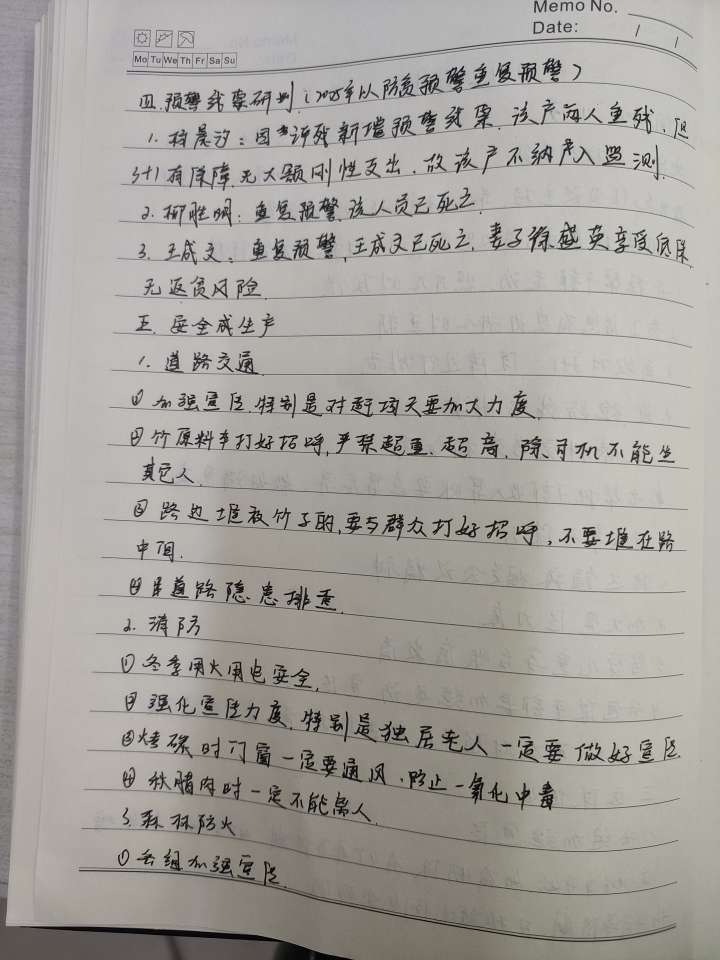 Memo No.
Date: / /
Mo Tu We Th Fr Sa Su
四.预警线索研判(2025年以防返预警重复预警)
1.晨汐:因评残新增预警线索.该户两人重残,但
3+1有保障.无大额刚性支出.故该户不纳入监测.
2.柳胜明:重复预警.该人员已死亡.
3.王成文.重复预警,王成文已死亡.妻子徐盛英享受低保.
无返贫风险.
五.安全成生产
1.道路交通.
①加强宣传.特别是对赶场天要加大力度.
②竹原料车打好招呼,严禁超重.超高.除司机不能坐
其它人.
③路边堆放竹子的,要与群众打好招呼,不要堆在路
中间.
④道路隐患排查.
2.消防
①冬季用火用电安全.
②强化宣传力度.特别是独居老人一定要做好宣传.
③烤碳时门窗一定要通风.防止一氧化中毒
④秋腊肉时一定不能离人.
3.森林防火
①各组加强宣传.